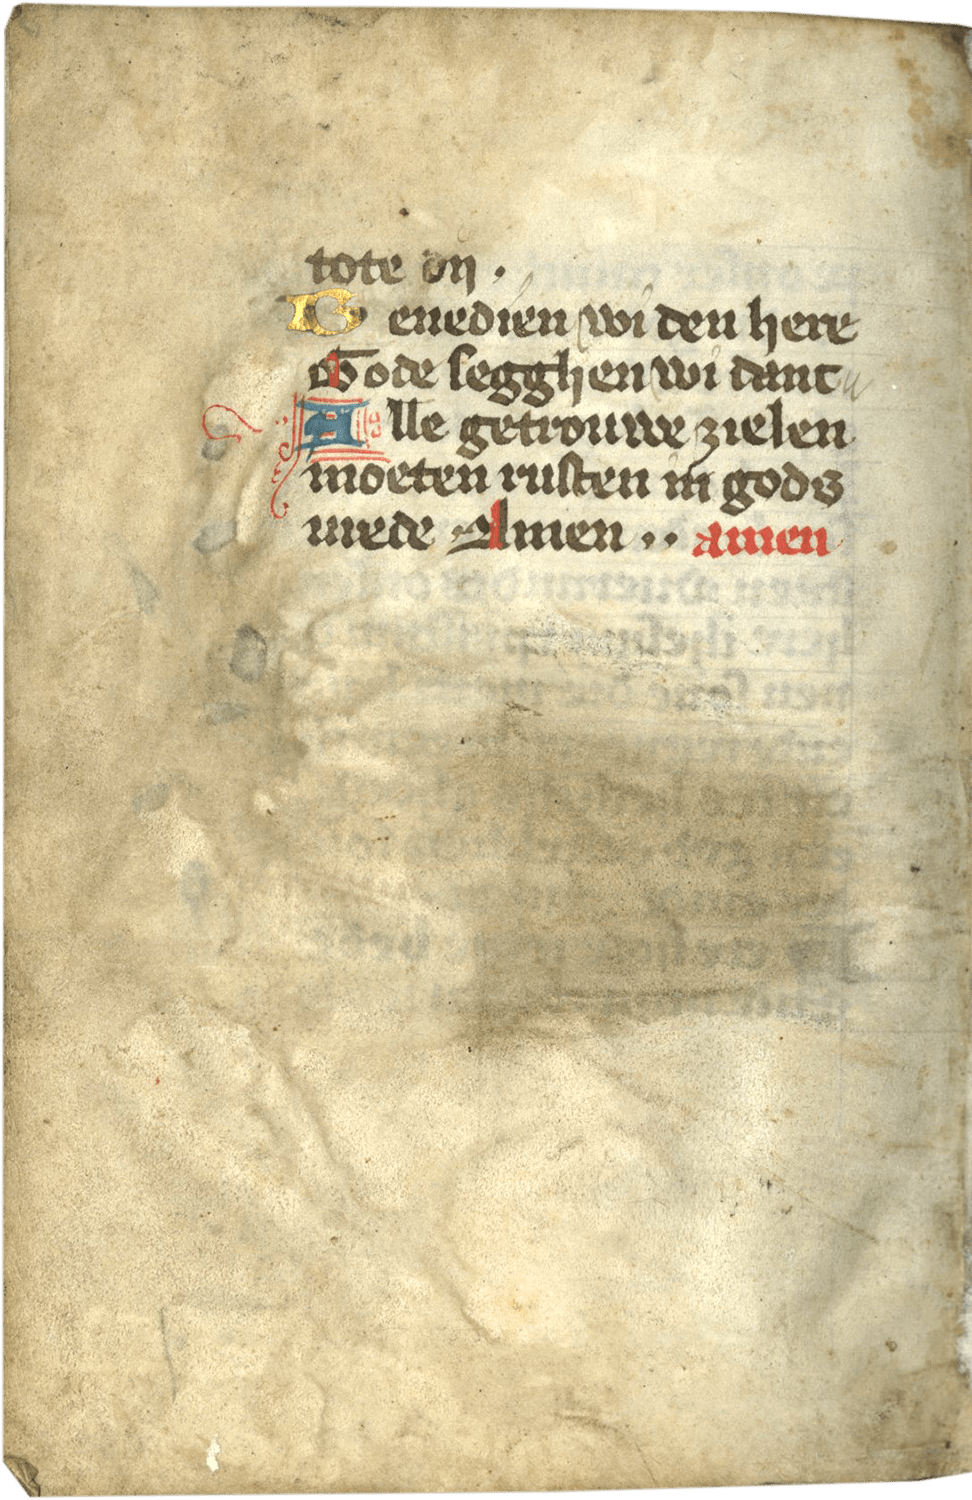 tote dij.
Benedien wi den here
Gode segghen wi danc
Alle getrouwe zielen
moeten rusten in gods
vrede Amen.. amen